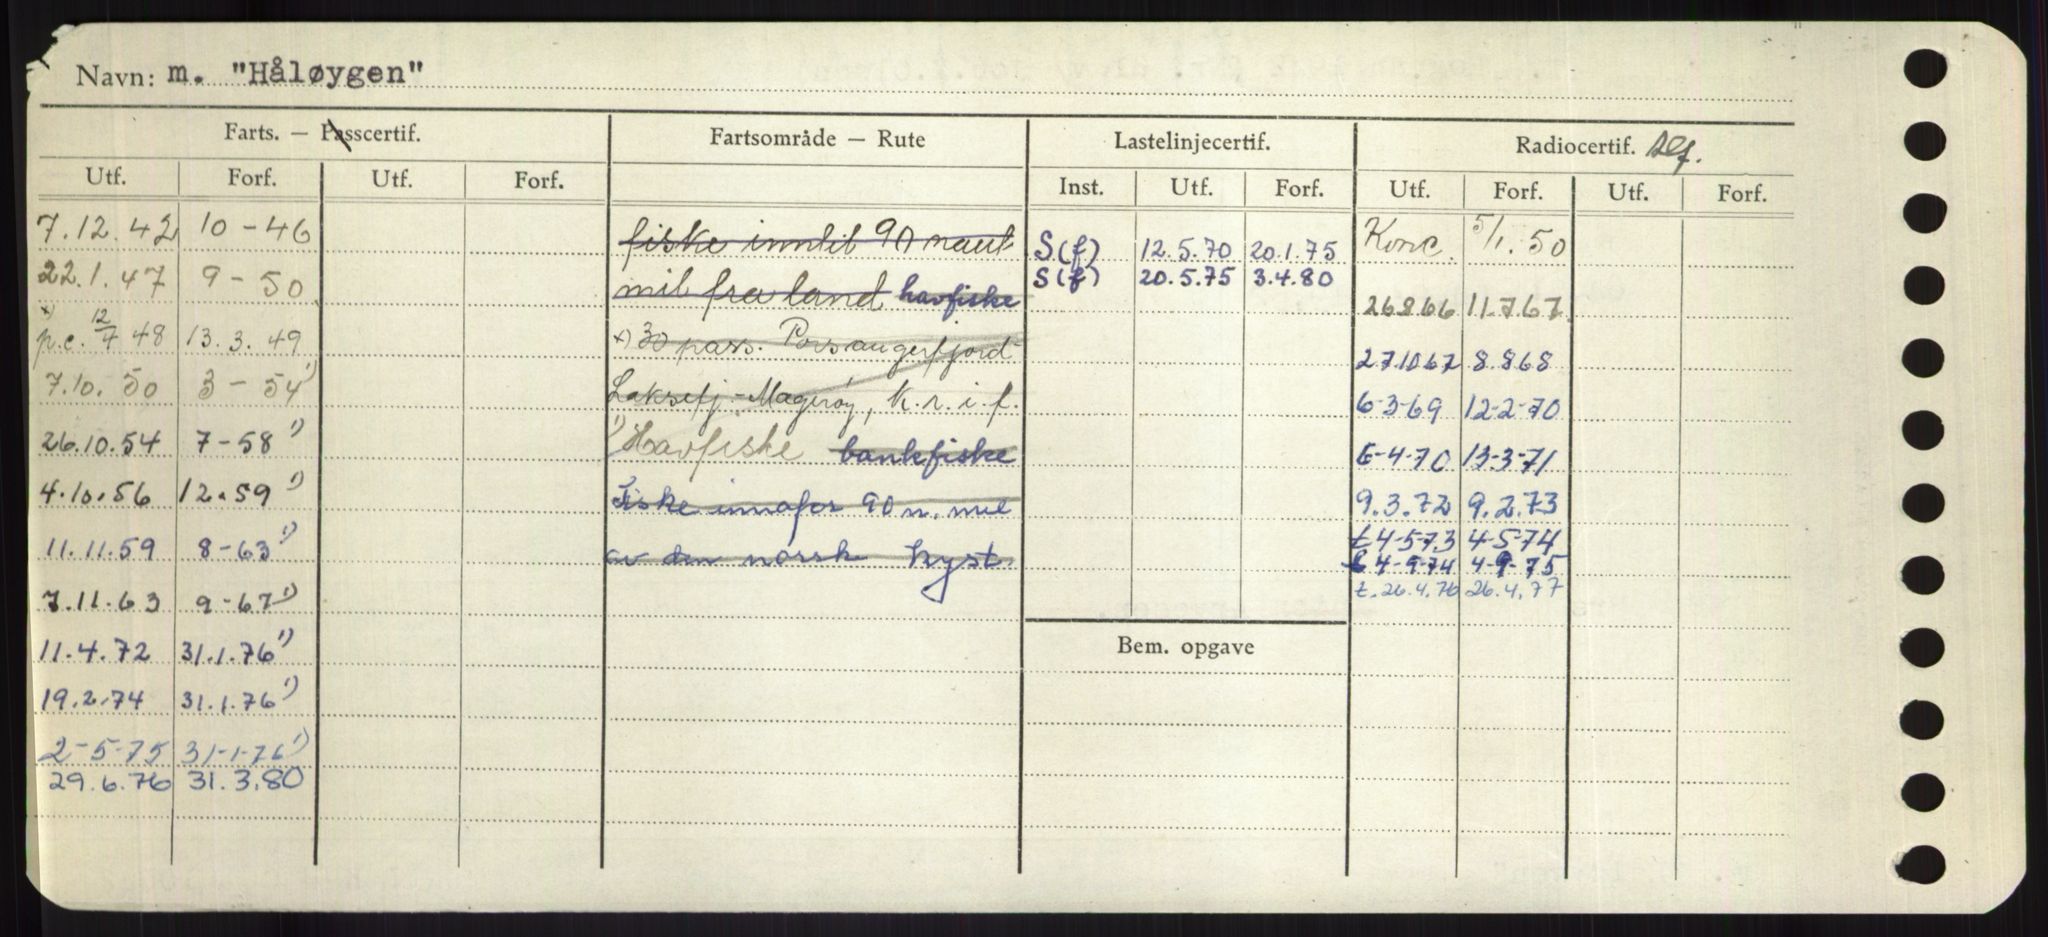 Navn: m. "Håløygen"
Farts. — Passcertif. Fartsområde — Rute Lastelinjecertif. Radiocertif.
Utf. Forf. Utf. Forf. Inst. Utf. Forf. Utf. Forf. Utf. Forf.
7.12.42 10-46 fiske inntil 90 naut S(f) 12.5.70 20.1.75 Konc. 5/1.50
22.1.47 9-50 mil fra land havfiske S(f) 20.5.75 3.4.80 26866 11.7.67
x) p.c. 12/7 48 13.3.49 x) 30 pass. Porsangerfjord 271067 8.868
7.10.50 3-54 1) Laksefj.-Magerøy, k.r.i.f. 6-3-69 12-2-70
26.10.54 7-58 1) 1) Havfiske bankfiske 6-4-70 13-3-71
4.10.56 12.59 1) Fiske innafor 90 n. mil 9.3.72 9.2.73
11.11.59 8-63 1) av den norsk kyst t 4-5-73 4-5-74
t 4-9-74 4-9-75
7.11.63 9-67 1) t. 26.4.76 26.4.77
11.4.72 31.1.76 1) Bem. opgave
19.2.74 31.1.76 1)
2-5-75 31-1-76 1)
29.6.76 31.3.80